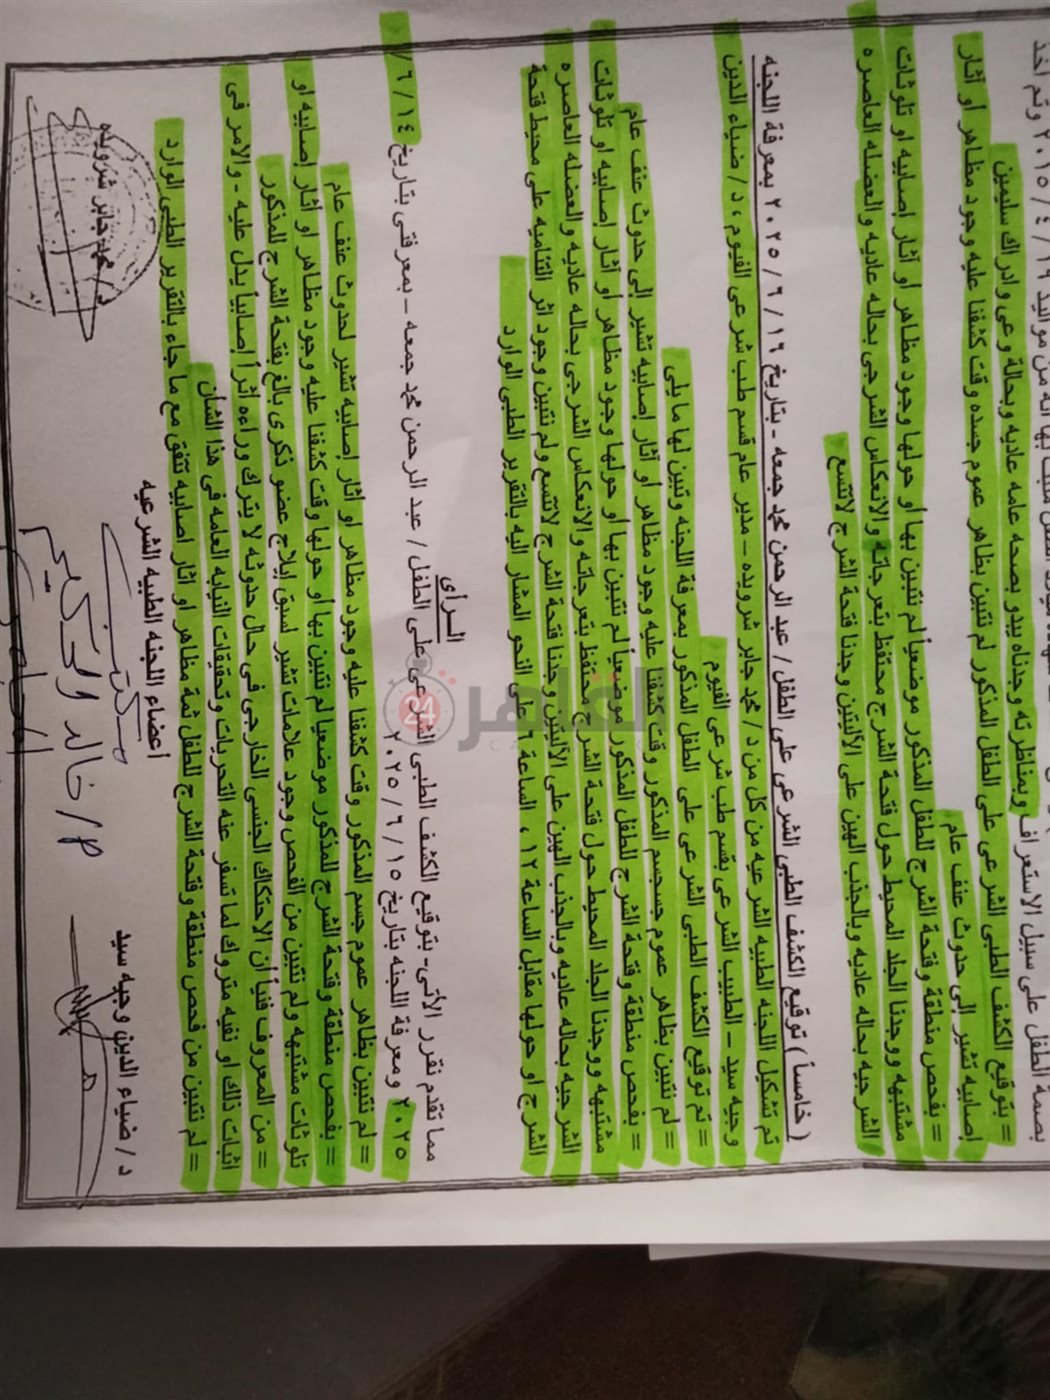 بصمة الطفل على سبيل الاستعراف وبمناظرته وجدناه يبدو بصحه عامه عاديه وبحالة وعى وادراك سليمين
= بتوقيع الكشف الطبى الشرعى على الطفل المذكور لم نتبين بظاهر عموم جسده وقت كشفنا عليه وجود مظاهر أو آثار
إصابيه تشير إلى حدوث عنف عام
= بفحص منطقة وفتحة الشرج للطفل المذكور موضعياً لم نتبين بها أو حولها وجود مظاهر أو آثار إصابيه او تلوثات
مشتبهه ووجدنا الجلد المحيط حول فتحة الشرج محتفظ بتعرجاته والانعكاس الشرجى بحاله عاديه والعضله العاصره
الشرجيه بحاله عاديه وبالجذب الهين على الأليتين وجدنا فتحة الشرج لاتتسع
( خامساً ) توقيع الكشف الطبى الشرعى على الطفل / عبد الرحمن محمد جمعه – بتاريخ ١٦ / ٦ / ٢٠٢٥ بمعرفة اللجنه
تم تشكيل اللجنه الطبيه الشرعيه من كل من د/ محمد جابر شرويده – مدير عام قسم طب شرعى الفيوم ، د/ ضياء الدين
وجيه سيد – الطبيب الشرعى بقسم طب شرعى الفيوم
= تم توقيع الكشف الطبى الشرعى على الطفل المذكور بمعرفة اللجنه وتبين لها ما يلى
= لم نتبين بظاهر عموم جسم المذكور وقت كشفنا عليه وجود مظاهر أو آثار إصابيه تشير إلى حدوث عنف عام
= بفحص منطقة وفتحة الشرج للطفل المذكور موضعياً لم نتبين بها أو حولها وجود مظاهر أو آثار إصابيه او تلوثات
مشتبهه ووجدنا الجلد المحيط حول فتحة الشرج محتفظ بتعرجاته والانعكاس الشرجى بحاله عاديه والعضله العاصره
الشرجيه بحاله عاديه وبالجذب الهين على الأليتين وجدنا فتحة الشرج لاتتسع ولم نتبين وجود اثر التئاميه على محيط فتحة
الشرج او حولها مقابل الساعة ١٢ ، الساعة ٦ على النحو المشار اليه بالتقرير الطبى الوارد
الـــرأى
مما تقدم نقرر الأتى – بتوقيع الكشف الطبى الشرعى على الطفل / عبد الرحمن محمد جمعه – بمعرفتى بتاريخ ١٤ / ٦ /
٢٠٢٥ ومعرفة اللجنه بتاريخ ١٥ / ٦ / ٢٠٢٥
= لم نتبين بظاهر عموم جسم المذكور وقت كشفنا عليه وجود مظاهر او آثار إصابيه تشير لحدوث عنف عام
= بفحص منطقة وفتحة الشرج للمذكور موضعيا لم نتبين بها او حولها وقت كشفنا عليه وجود مظاهر او آثار إصابيه او
تلوثات مشتبهه ولم نتبين من الفحص وجود علامات تشير لسبق إيلاج عضو ذكرى بالغ بفتحة الشرج للمذكور
= من المعروف فنياً أن الاحتكاك الجنسى الخارجى فى حال حدوثه لا يترك وراءه أثراً إصابياً يدل عليه – والامر فى
اثبات ذلك او نفيه متروك لما تسفر عنه التحريات وتحقيقات النيابه العامه فى هذا الشأن
= لم نتبين من فحص منطقة وفتحة الشرج للطفل ثمة مظاهر او اثار اصابيه تتفق مع ما جاء بالتقرير الطبى الوارد
أعضاء اللجنه الطبيه الشرعيه
د/ ضياء الدين وجيه سيد
د/ محمد جابر شرويده
القاهرة 24
CAIRO